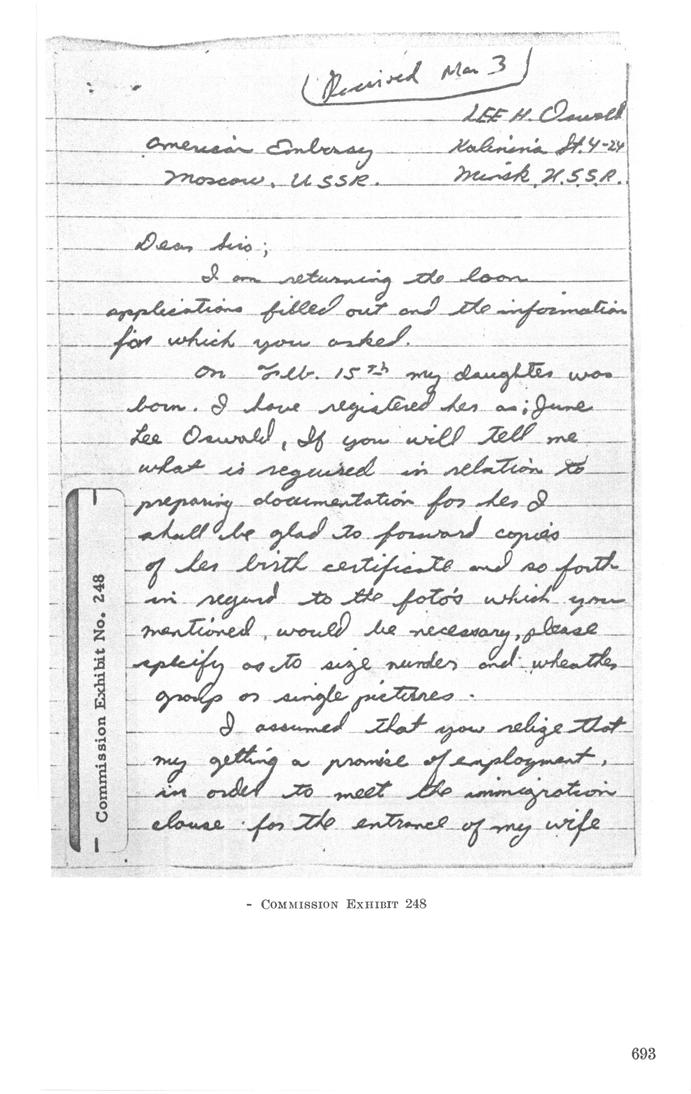 Received Mar 3
LEE H. Oswald
American Embassy Kalinina St. 4-24
Moscow, U SSR. Minsk, U.S.S.R.
Dear Sirs;
I am returning the loan
applications filled out and the information
for which you asked.
On Feb. 15th my daughter was
born. I have registered her as; June
Lee Oswald, If you will tell me
what is reguired in relation to
preparing documentation for her I
shall be glad to forward copies
of her birth certificate and so forth
in regard to the foto's which you
mentioned, would be necessary, please
specify as to size number and wheather
group or single pictures.
I assumed that you relize that
my getting a promise of employment,
in order to meet the immigration
clause for the entrance of my wife
- Commission Exhibit No. 248 -
- COMMISSION EXHIBIT 248
693